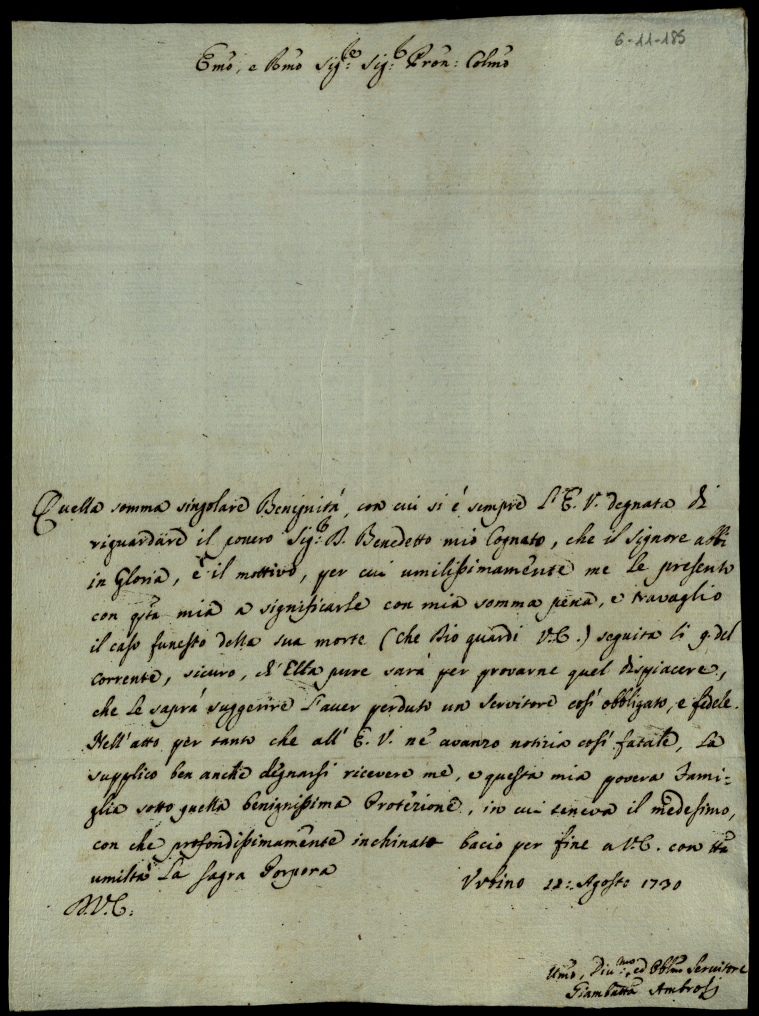 6-11-185
Emo, e Rmo Sig.re Sig.r Pron: Colmo
Quella somma singolare Benignità, con cui si é sempre L'E. V. degnata di
riguardare il povero Sig.r D. Benedetto mio Cognato, che il Signore abbi
in Gloria, è il mottivo, per cui umilissimamente me Le presento
con qsta mia a significarle con mia somma pena, e travaglio
il caso funesto della sua morte (che Dio guardi V.E.) seguita li 9. del
corrente, sicuro, ch'Ella pure sarà per provarne quel dispiacere,
che Le saprà suggerire l'aver perduto un Servitore così obbligato, e fedele.
Nell'atto per tanto che all'E. V. ne avanzo notizia così fatale, La
supplico ben anche degnarsi ricevere me, e questa mia povera Fami-
glia sotto quella benignissima Protezione, in cui teneva il medesimo,
con che profondissimamente inchinato bacio per fine a V.E. con tta
umiltà La Sagra Porpora Urbino 12: Agosto 1730
D.V.E.
Umo, Divmo:, ed Obblmo Servitore
Giambatta Ambrosj